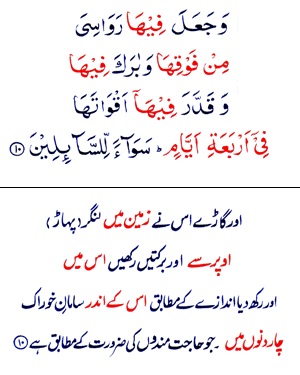 وَ جَعَلَ فِيْهَا رَوَاسِىَ
مِنْ فَوْقِهَا وَ بٰرَكَ فِيْهَا
وَ قَدَّرَ فِيْهَاۤ اَقْوَاتَهَا
فِىْۤ اَرْبَعَةِ اَيَّامٍؕ سَوَآءً لِّلسَّآىِٕلِيْنَ ۝۱۰
اور گاڑے اس نے زمین میں لنگر (پہاڑ)
اوپر سے اور برکتیں رکھیں اس میں
اور رکھ دیا اندازے کے مطابق اس کے اندر سامانِ خوراک
چار دنوں میں ۔ جو حاجت مندوں کی ضرورت کے مطابق ہے ۝۱۰